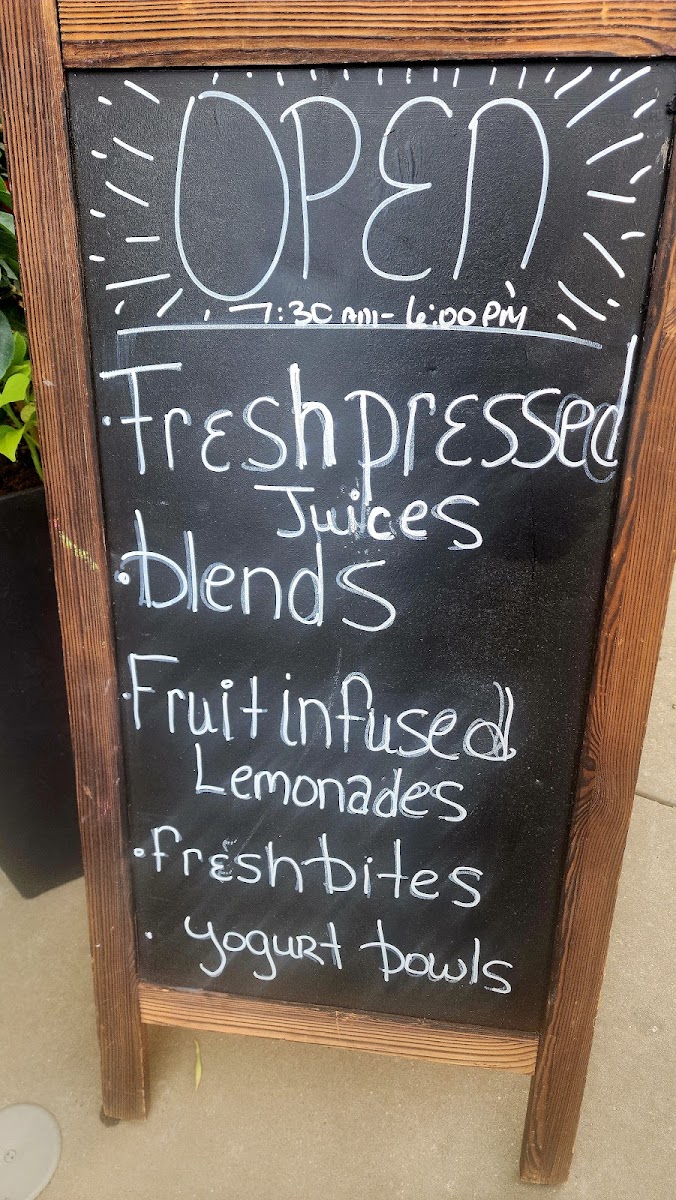 OPEN
7:30 AM - 6:00 PM
· Fresh pressed
Juices
· blends
· Fruit infused
Lemonades
· fresh bites
· yogurt bowls